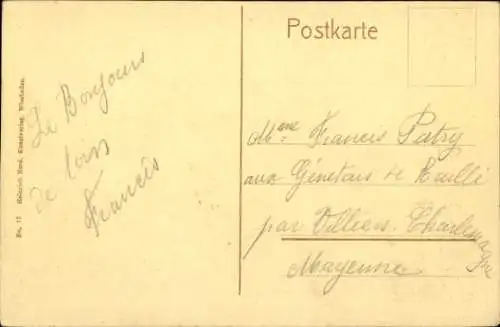 Postkarte
No. 17 Heinrich Nerd, Kunstverlag, Wiesbaden.
Le Bonjour
de loin
Francis
Mme Francis Patry
aux Génetais de Ruillé
par Villiers Charlemagne
Mayenne